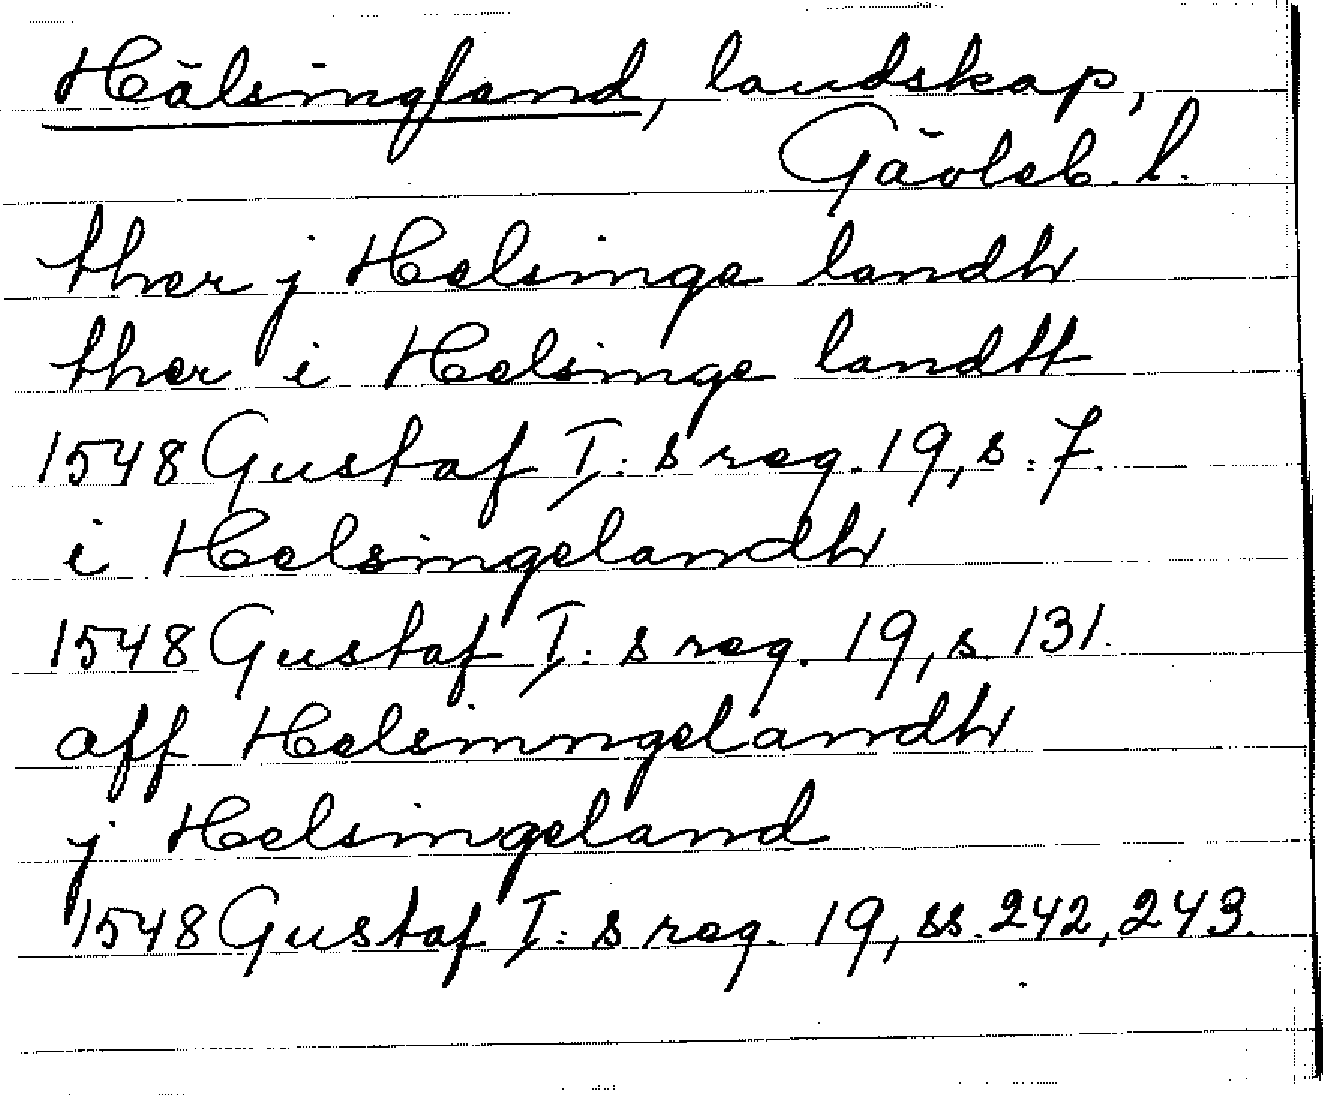 Hälsingland, landskap,
Gävleb. l.
ther j Helsinge landh
ther i Helsinge landtt
1548 Gustaf I:s reg. 19, s. 7.
i Helsingelandh
1548 Gustaf I:s reg. 19, s. 131.
aff Helsinngelandh
j Helsingeland
1548 Gustaf I:s reg. 19, ss. 242, 243.